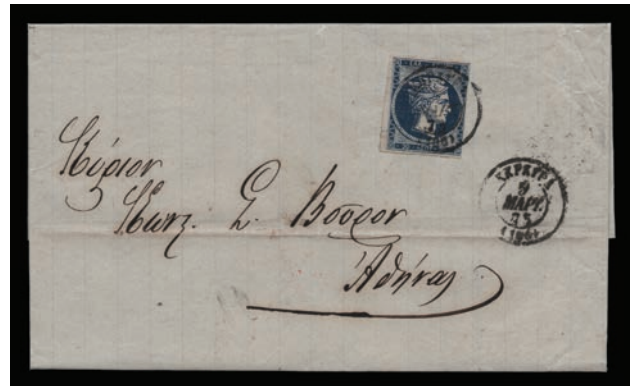 Κύριον
Κωνς. Σ. Βούρον
Ἀθήνας
ΚΕΡΚΥΡΑ
9
ΜΑΡΤ.
75
(106)